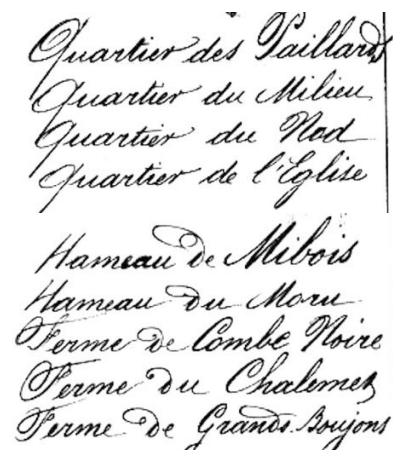 Quartier des Paillards
Quartier du Milieu
Quartier du Nod
Quartier de l'Eglise
Hameau de Mibois
Hameau du Moru
Ferme de Combe Noire
Ferme du Chalemet
Ferme de Grands Boujons